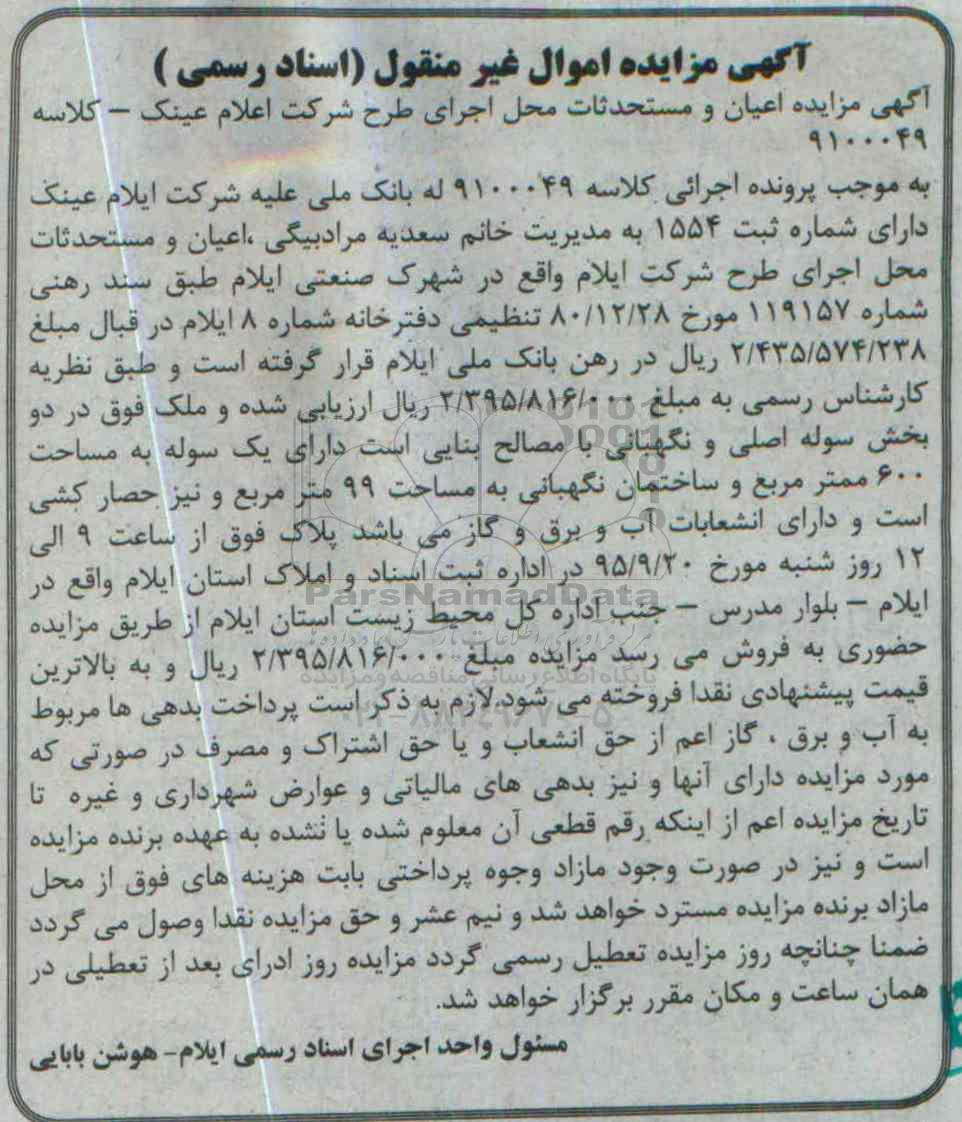 آگهی مزایده اموال غیر منقول (اسناد رسمی )
آگهی مزایده اعیان و مستحدثات محل اجرای طرح شرکت اعلام عینک – کلاسه
۹۱۰۰۰۴۹
به موجب پرونده اجرائی کلاسه ۹۱۰۰۰۴۹ له بانک ملی علیه شرکت ایلام عینک
دارای شماره ثبت ۱۵۵۴ به مدیریت خانم سعدیه مرادبیگی ،اعیان و مستحدثات
محل اجرای طرح شرکت ایلام واقع در شهرک صنعتی ایلام طبق سند رهنی
شماره ۱۱۹۱۵۷ مورخ ۸۰/۱۲/۲۸ تنظیمی دفترخانه شماره ۸ ایلام در قبال مبلغ
۲/۴۳۵/۵۷۴/۲۳۸ ریال در رهن بانک ملی ایلام قرار گرفته است و طبق نظریه
کارشناس رسمی به مبلغ ۲/۳۹۵/۸۱۶/۰۰۰ ریال ارزیابی شده و ملک فوق در دو
بخش سوله اصلی و نگهبانی با مصالح بنایی است دارای یک سوله به مساحت
۶۰۰ ممتر مربع و ساختمان نگهبانی به مساحت ۹۹ متر مربع و نیز حصار کشی
است و دارای انشعابات آب و برق و گاز می باشد پلاک فوق از ساعت ۹ الی
۱۲ روز شنبه مورخ ۹۵/۹/۲۰ در اداره ثبت اسناد و املاک استان ایلام واقع در
ایلام – بلوار مدرس – جنب اداره کل محیط زیست استان ایلام از طریق مزایده
حضوری به فروش می رسد مزایده مبلغ ۲/۳۹۵/۸۱۶/۰۰۰ ریال و به بالاترین
قیمت پیشنهادی نقدا فروخته می شود،لازم به ذکر است پرداخت بدهی ها مربوط
به آب و برق ، گاز اعم از حق انشعاب و یا حق اشتراک و مصرف در صورتی که
مورد مزایده دارای آنها و نیز بدهی های مالیاتی و عوارض شهرداری و غیره تا
تاریخ مزایده اعم از اینکه رقم قطعی آن معلوم شده یا نشده به عهده برنده مزایده
است و نیز در صورت وجود مازاد وجوه پرداختی بابت هزینه های فوق از محل
مازاد برنده مزایده مسترد خواهد شد و نیم عشر و حق مزایده نقدا وصول می گردد
ضمنا چنانچه روز مزایده تعطیل رسمی گردد مزایده روز ادرای بعد از تعطیلی در
همان ساعت و مکان مقرر برگزار خواهد شد.
مسئول واحد اجرای اسناد رسمی ایلام- هوشن بابایی
ParsNamadData
پایگاه اطلاع رسانی مناقصه و مزایده